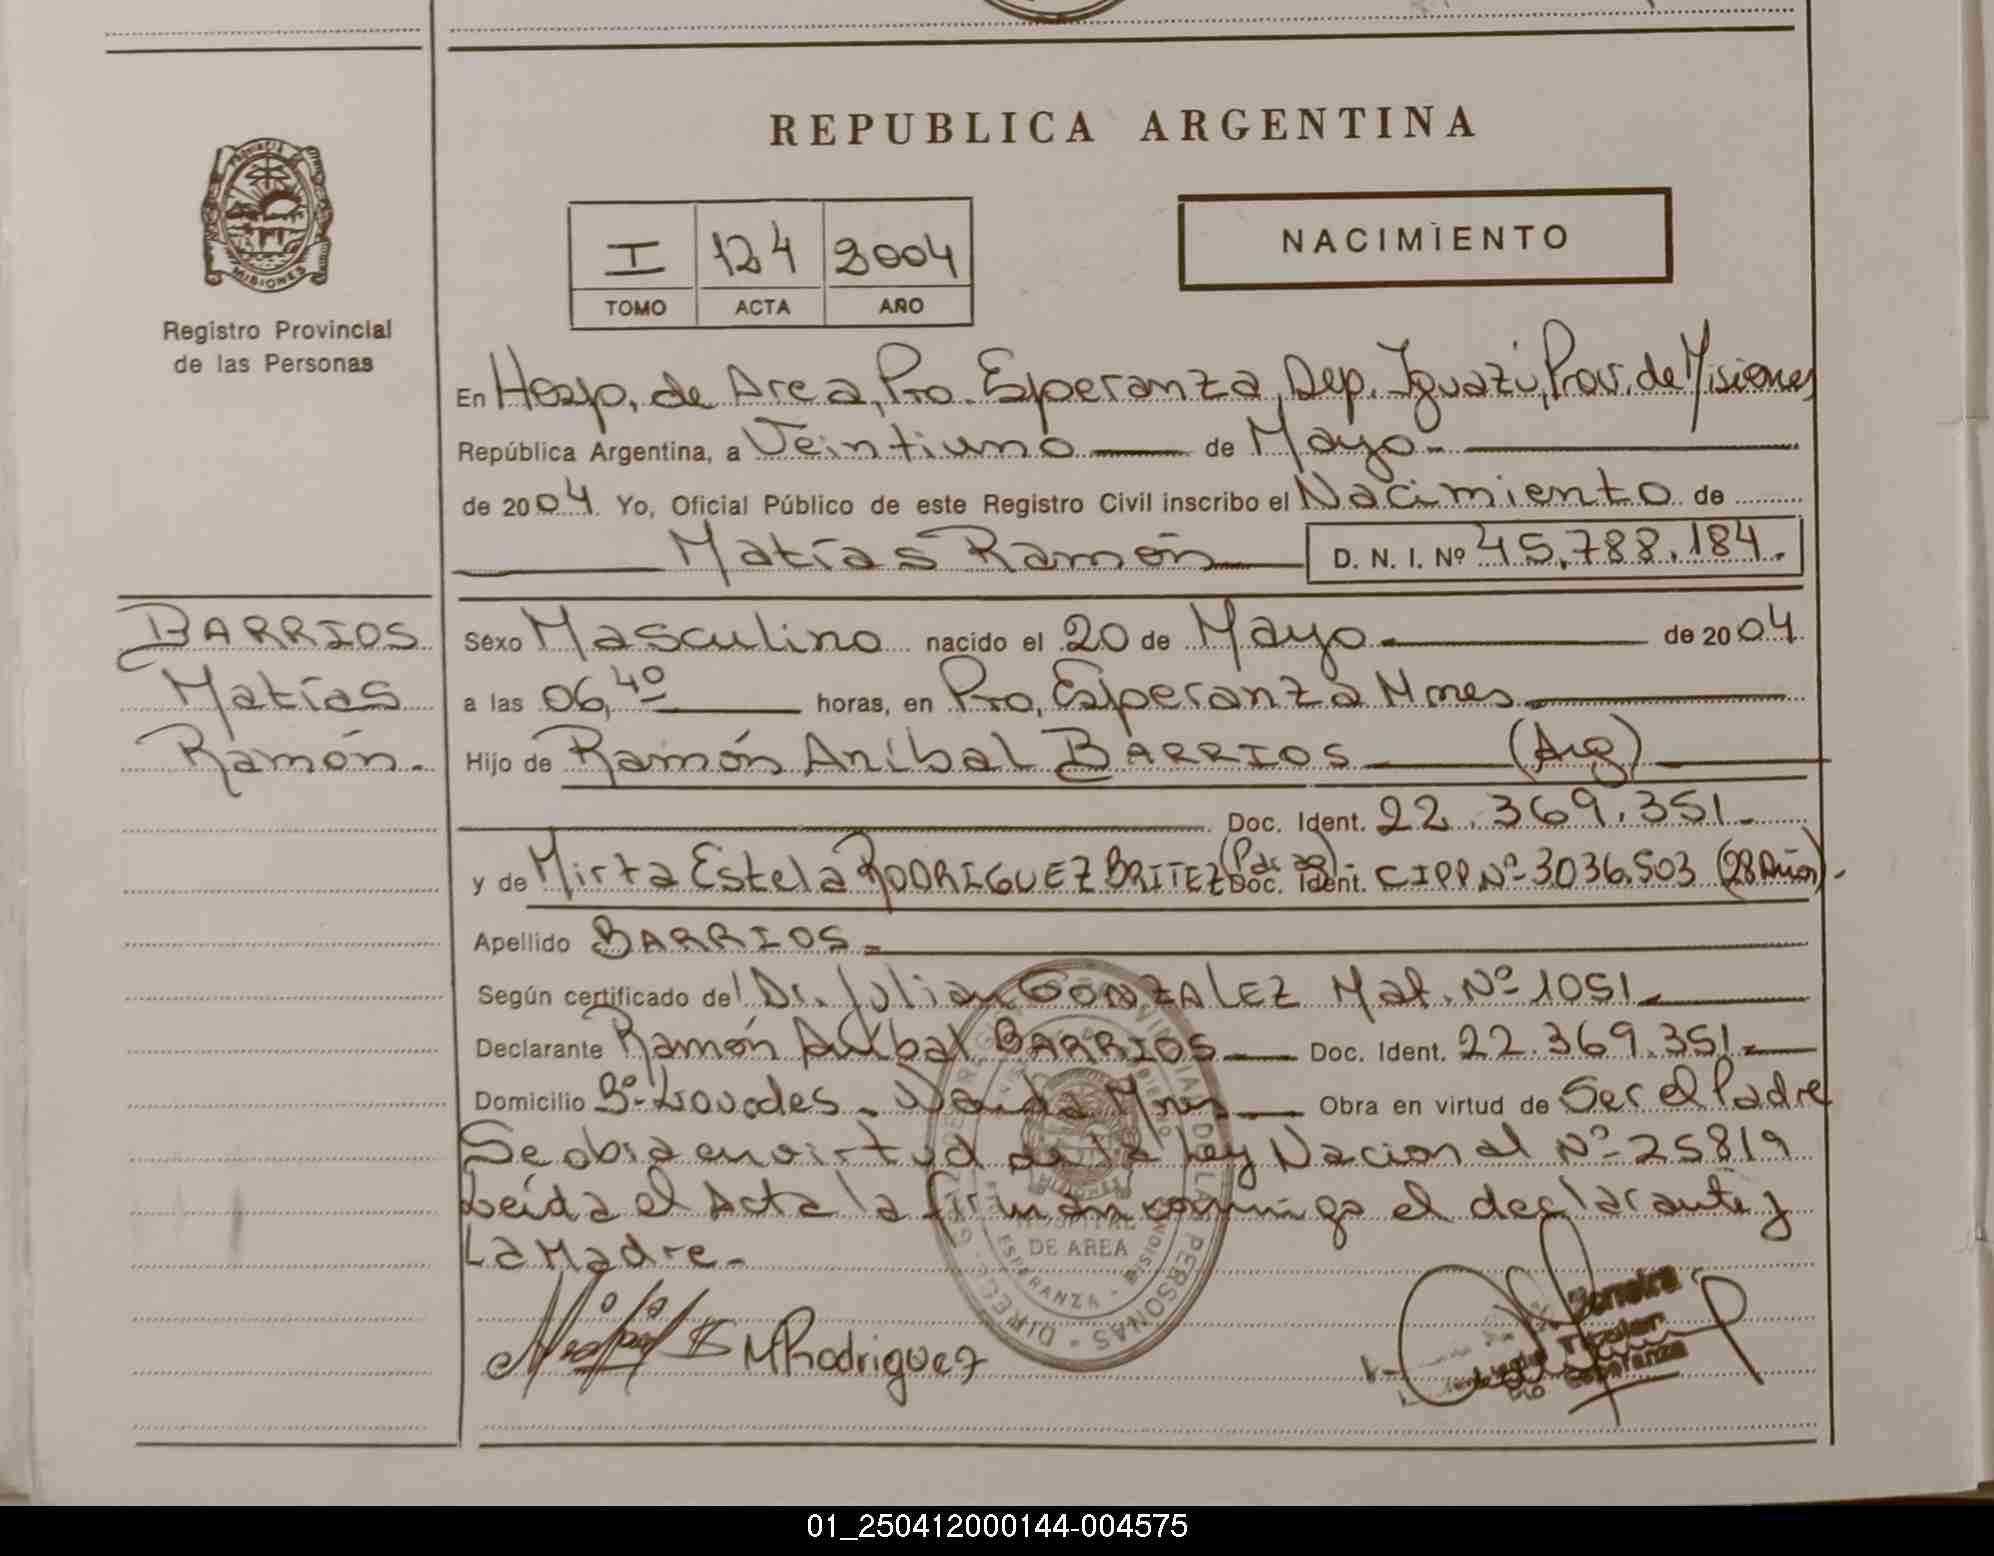 REPUBLICA ARGENTINA
PROVINCIA DE MISIONES
Registro Provincial
de las Personas
I 124 2004
TOMO ACTA AÑO
NACIMIENTO
En Hosp. de Area, Pto. Esperanza, Dep. Iguazú, Prov. de Misiones
República Argentina, a Veintiuno de Mayo
de 2004 Yo, Oficial Público de este Registro Civil inscribo el Nacimiento de
Matías Ramón D. N. I. Nº 45.788.184.
BARRIOS
Matías
Ramón.
Sexo Masculino nacido el 20 de Mayo de 2004
a las 06,40 horas, en Pto. Esperanza Mnes
Hijo de Ramón Aníbal BARRIOS (Arg)
Doc. Ident. 22.369.351
y de Mirta Estela RODRIGUEZ BRITEZ Doc. Ident. CIPP Nº 3036.503 (28 Años).
Apellido BARRIOS
Según certificado del Dr. Julian GONZALEZ Mat. Nº 1051
Declarante Ramón Aníbal BARRIOS Doc. Ident. 22.369.351
Domicilio Bº Lourdes - Wanda Mnes Obra en virtud de Ser el Padre
Se obra en virtud de la Ley Nacional Nº 25819
Leída el Acta la firman conmigo el declarante y
La Madre.
HOSPITAL
DE AREA
ESPERANZA - MISIONES
MRodriguez
Titular
Pto Esperanza
01_250412000144-004575